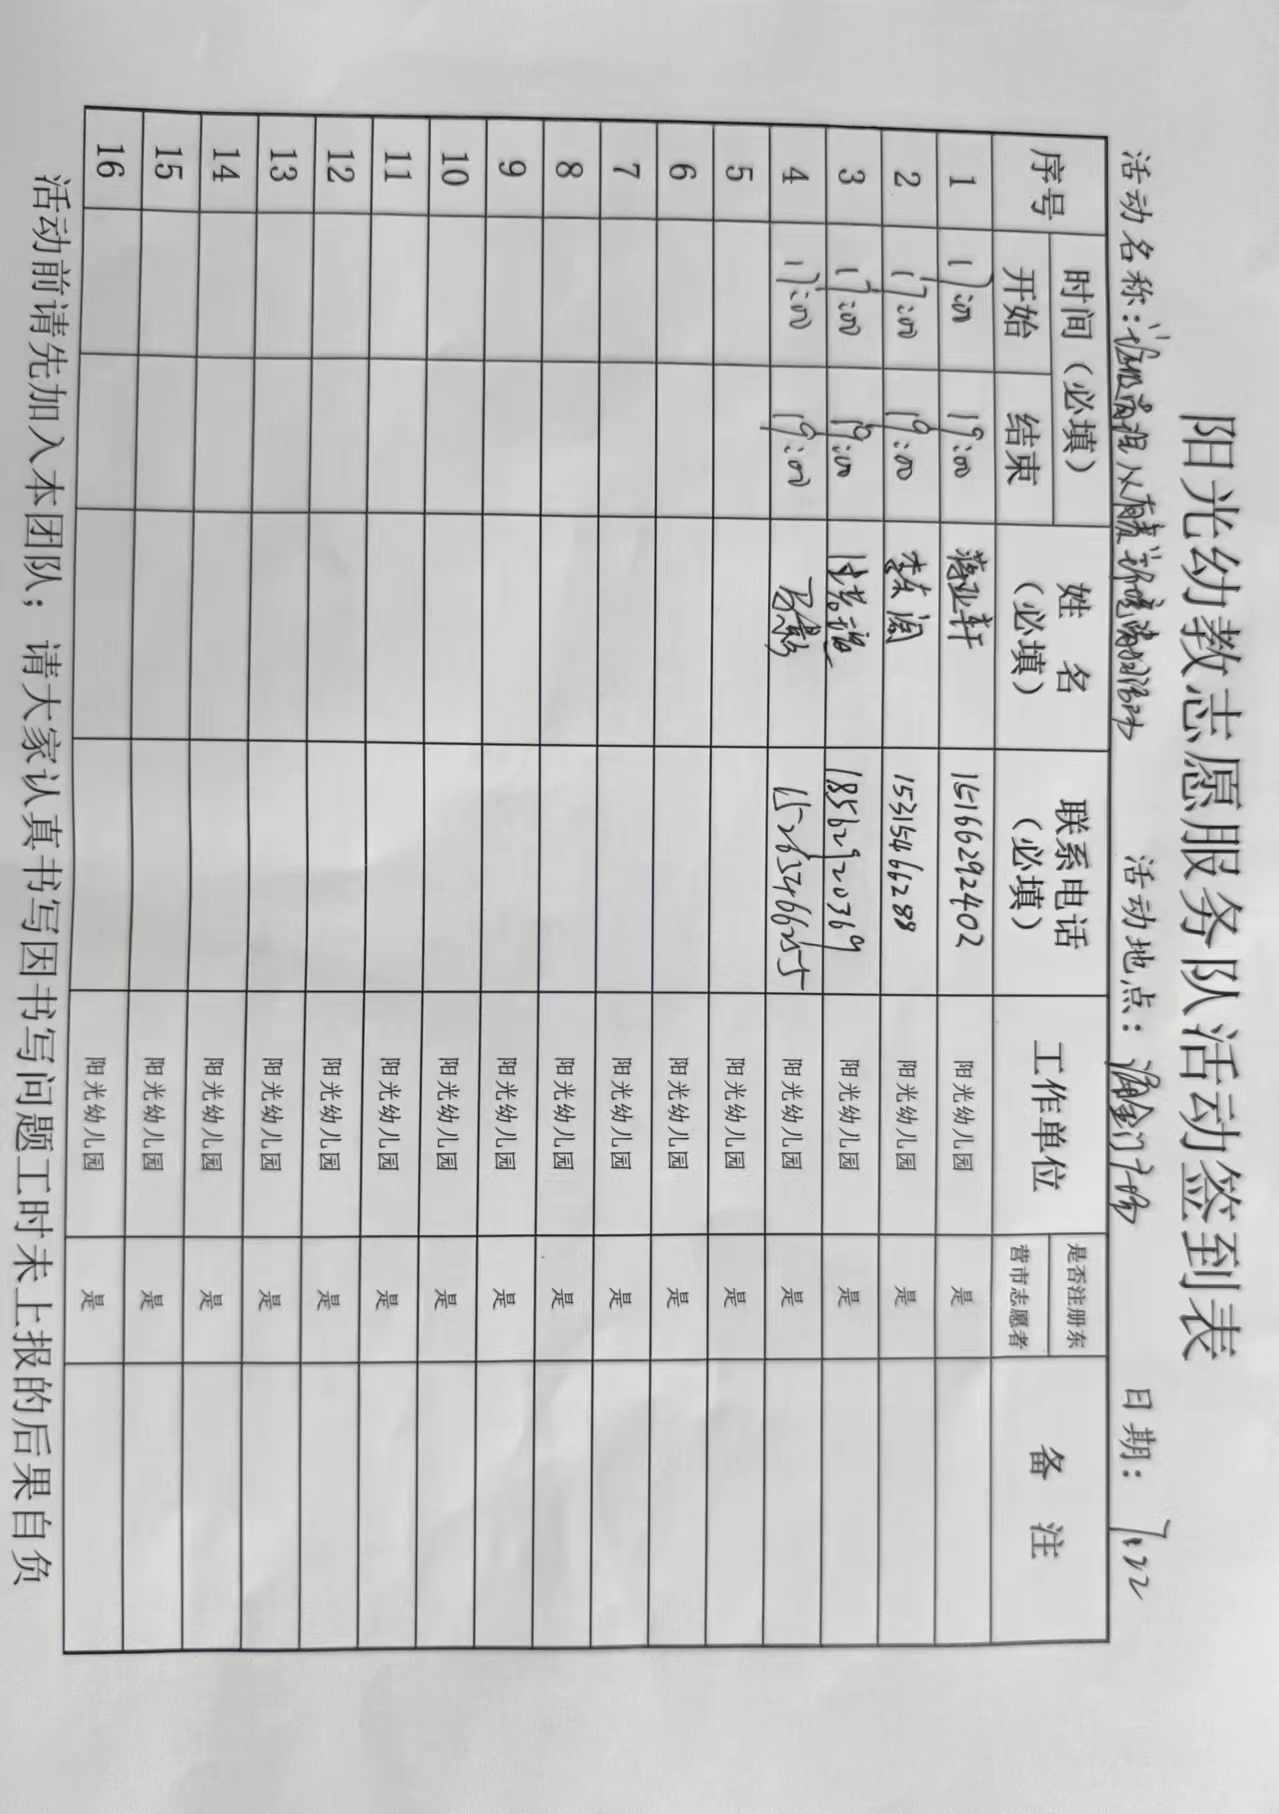 阳光幼教志愿服务队活动签到表
活动名称: 活动地点: 日期: 7.22
序号 时间（必填） 姓 名（必填） 联系电话（必填） 工作单位 是否注册东营市志愿者 备 注
开始 结束
1 17:00 19:00 蒋亚轩 15166292402 阳光幼儿园 是
2 17:00 19:00 15315466288 阳光幼儿园 是
3 17:00 19:00 18562920369 阳光幼儿园 是
4 17:00 19:00 15263466255 阳光幼儿园 是
5 阳光幼儿园 是
6 阳光幼儿园 是
7 阳光幼儿园 是
8 阳光幼儿园 是
9 阳光幼儿园 是
10 阳光幼儿园 是
11 阳光幼儿园 是
12 阳光幼儿园 是
13 阳光幼儿园 是
14 阳光幼儿园 是
15 阳光幼儿园 是
16 阳光幼儿园 是
活动前请先加入本团队；请大家认真书写因书写问题工时未上报的后果自负